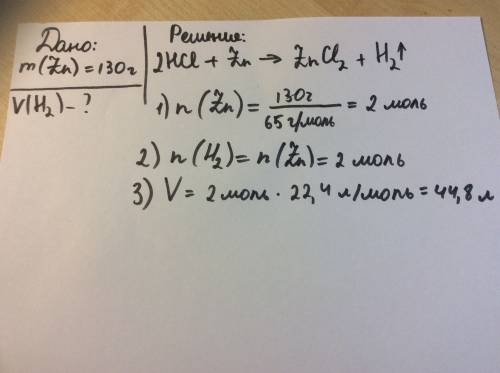 Дано:
m(Zn) = 130 г
V(H₂) - ?
Решение:
2HCl + Zn → ZnCl₂ + H₂↑
1) n(Zn) = 130г / 65 г/моль = 2 моль
2) n(H₂) = n(Zn) = 2 моль
3) V = 2 моль · 22,4 л/моль = 44,8 л